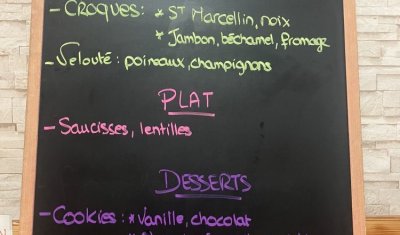 - CROQUES: * ST Marcellin, noix
* Jambon, béchamel, fromage
- Velouté: poireaux, champignons
PLAT
- Saucisses, lentilles
DESSERTS
- Cookies: * Vanille, chocolat